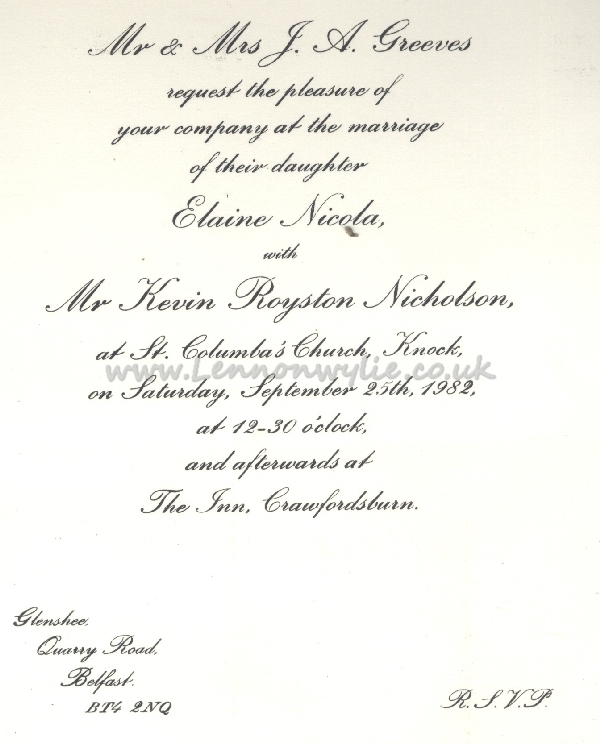 Mr & Mrs J. A. Greeves
request the pleasure of
your company at the marriage
of their daughter
Elaine Nicola,
with
Mr Kevin Royston Nicholson,
at St. Columba's Church, Knock,
www.Lennonwylie.co.uk
on Saturday, September 25th, 1982,
at 12-30 o'clock,
and afterwards at
The Inn, Crawfordsburn.
Glenshee,
Quarry Road,
Belfast.
BT4 2NQ
R.S.V.P.